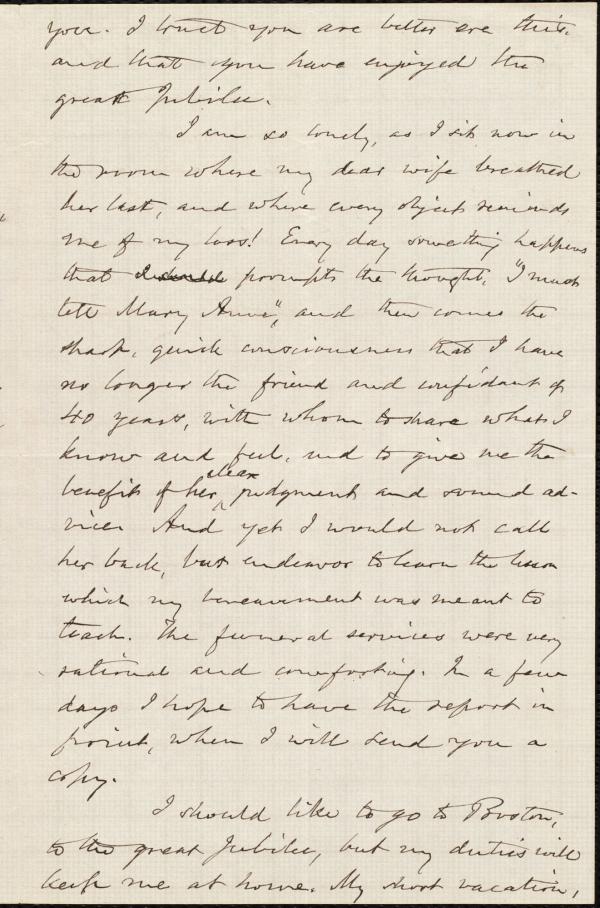 you. I trust you are better ere this,
and that you have enjoyed the
great Jubilee.
I am so lonely, as I sit now in
the room where my dear wife breathed
her last, and where every object reminds
me of my loss! Every day something happens
that I should prompts the thought, "I must
tell Mary Anne", and then comes the
sharp, quick consciousness that I have
no longer the friend and confidant of
40 years, with whom to share what I
know and feel, and to give me the
clear
benefit of her judgment and sound ad-
vice. And yet I would not call
her back, but endeavor to learn the lesson
which my bereavement was meant to
teach. The funeral services were very
rational and comforting. In a few
days I hope to have the report in
print, when I will send you a
copy.
I should like to go to Boston,
to the great Jubilee, but my duties will
keep me at home. My short vacation,